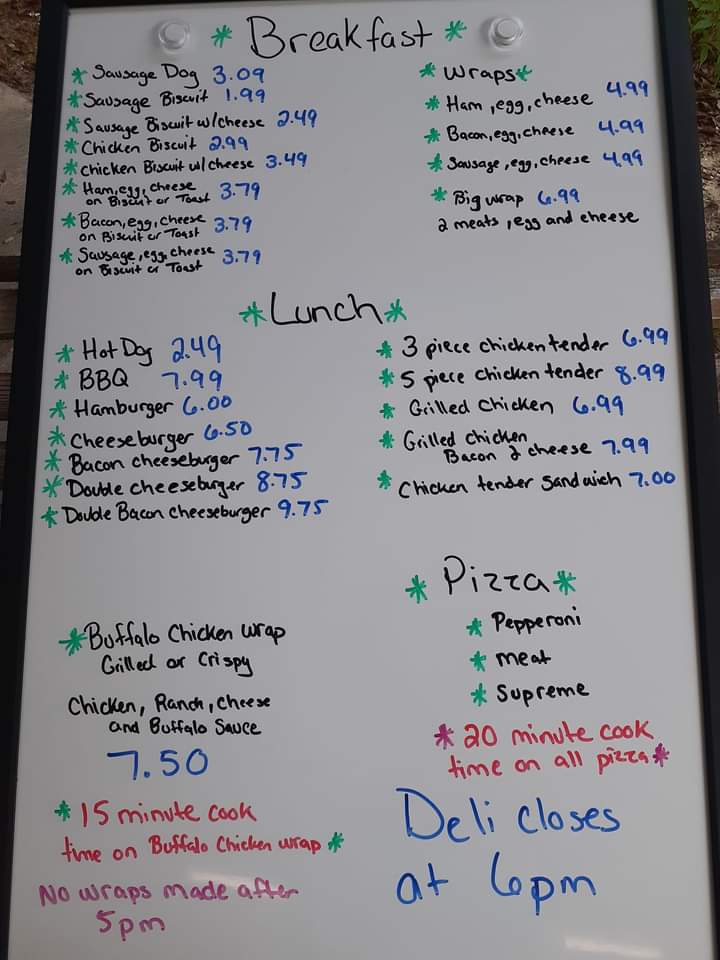 * Breakfast *
* Sausage Dog 3.09
* Sausage Biscuit 1.99
* Sausage Biscuit w/cheese 2.49
* Chicken Biscuit 2.99
* chicken Biscuit w/cheese 3.49
* Ham, egg, cheese
on Biscuit or Toast 3.79
* Bacon, egg, cheese
on Biscuit or Toast 3.79
* Sausage, egg, cheese
on Biscuit or Toast 3.79
* Wraps *
* Ham, egg, cheese 4.99
* Bacon, egg, cheese 4.99
* Sausage, egg, cheese 4.99
* Big wrap 6.99
2 meats, egg and cheese
* Lunch *
* Hot Dog 2.49
* BBQ 7.99
* Hamburger 6.00
* Cheeseburger 6.50
* Bacon cheeseburger 7.75
* Double cheeseburger 8.75
* Double Bacon cheeseburger 9.75
* 3 piece chicken tender 6.99
* 5 piece chicken tender 8.99
* Grilled Chicken 6.99
* Grilled chicken
Bacon & cheese 7.99
* Chicken tender Sandwich 7.00
* Buffalo Chicken wrap
Grilled or Crispy
Chicken, Ranch, Cheese
and Buffalo Sauce
7.50
* 15 minute cook
time on Buffalo Chicken wrap *
No wraps made after
5pm
* Pizza *
* Pepperoni
* meat
* Supreme
* 20 minute cook
time on all pizza *
Deli closes
at 6pm